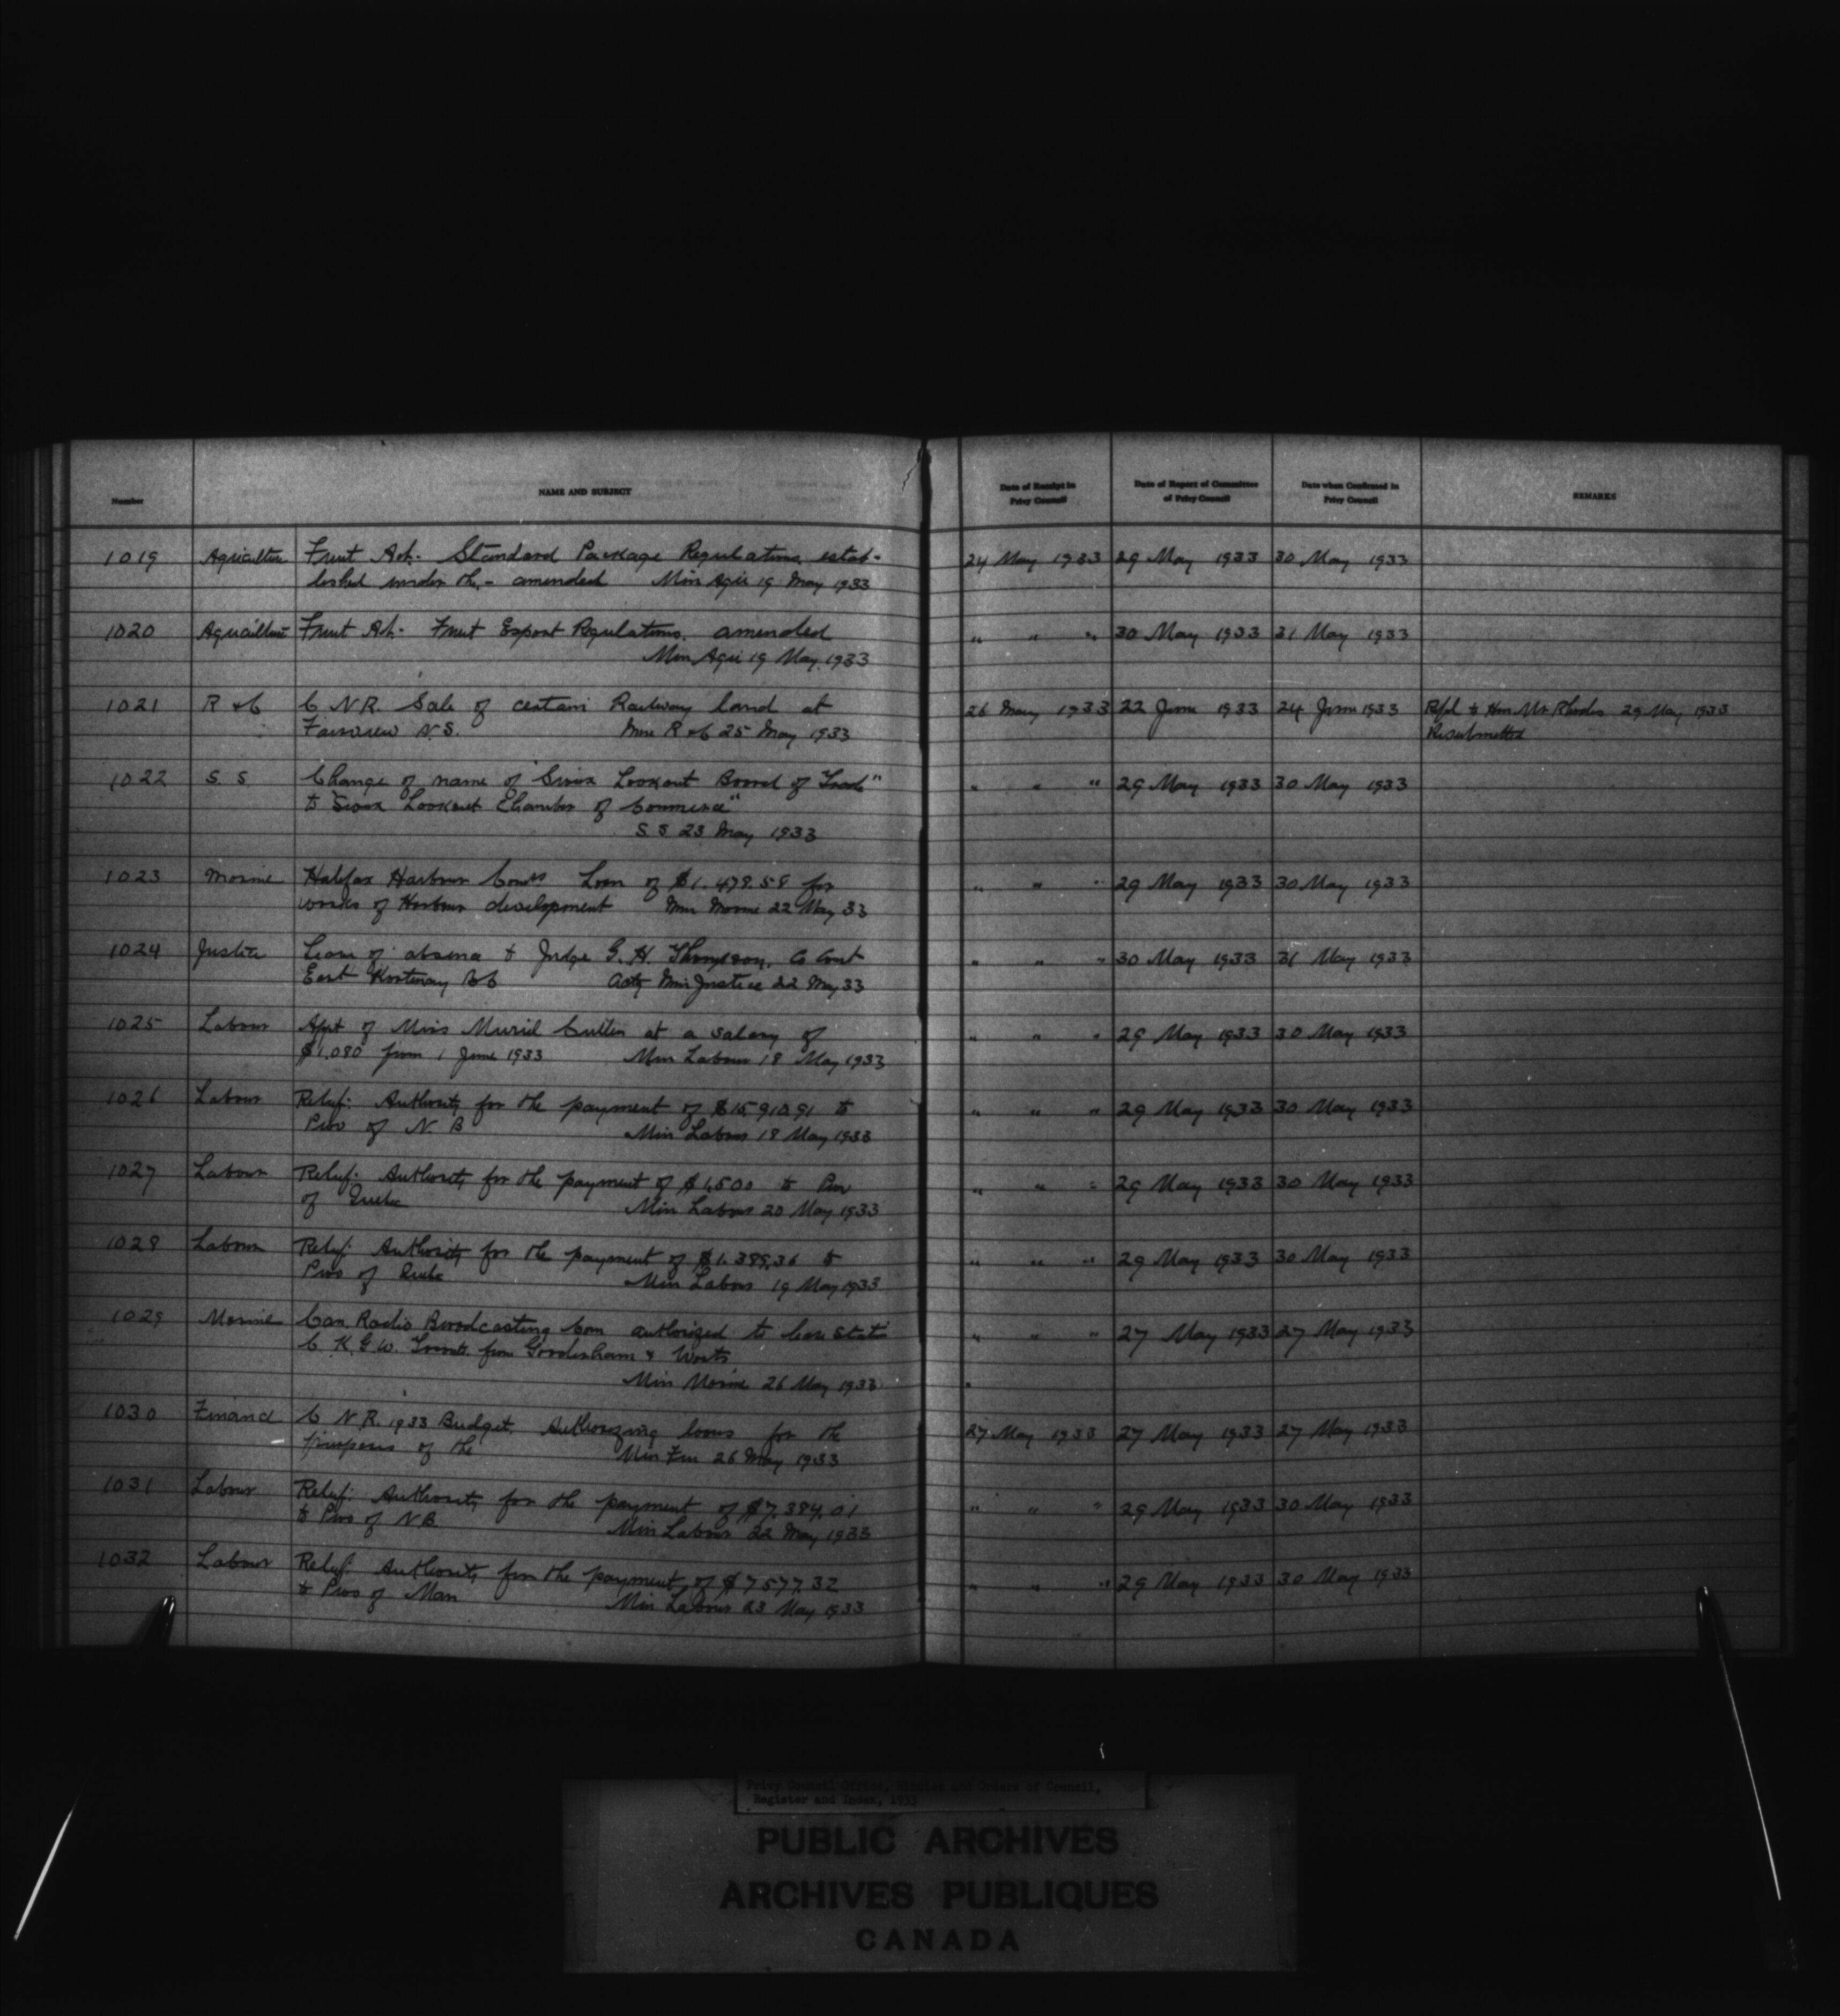 Number
NAME AND SUBJECT
Date of Receipt in Privy Council
Date of Report of Committee of Privy Council
Date when Confirmed in Privy Council
REMARKS
1019 Agriculture Fruit Act. Standard Package Regulations estab- 24 May 1933 29 May 1933 30 May 1933
lished under the - amended Min Agri 19 May 1933
1020 Agriculture Fruit Act. Fruit Export Regulations. amended " " " 30 May 1933 31 May 1933
Min Agri 19 May 1933
1021 R & C C N.R. Sale of certain Railway land at 26 May 1933 22 June 1933 24 June 1933 Refd to Hon Mr Rhodes 29 May 1933
Fairview N.S. Min R & C 25 May 1933 Resubmitted
1022 S. S Change of name of "Sioux Lookout Board of Trade" " " " 29 May 1933 30 May 1933
to "Sioux Lookout Chamber of Commerce"
S. S 23 May 1933
1023 Marine Halifax Harbour Comrs Loan of $1.479.58 for " " " 29 May 1933 30 May 1933
works of Harbour development Min Marine 22 May 33
1024 Justice Leave of absence to Judge G. H. Thompson. Co Court " " " 30 May 1933 31 May 1933
East Kootenay B C Actg Min Justice 22 May 33
1025 Labour Appt of Miss Muriel Cullen at a salary of " " " 29 May 1933 30 May 1933
$1.080 from 1 June 1933 Min Labour 18 May 1933
1026 Labour Relief: Authority for the payment of $15910.91 to " " " 29 May 1933 30 May 1933
Prov of N. B Min Labour 18 May 1933
1027 Labour Relief: Authority for the payment of $1,500 to Prov " " " 29 May 1933 30 May 1933
of Quebec Min Labour 20 May 1933
1028 Labour Relief: Authority for the payment of $1.399.36 to " " " 29 May 1933 30 May 1933
Prov of Quebec Min Labour 19 May 1933
1029 Marine Can. Radio Broadcasting Com authorized to lease Stati " " " 27 May 1933 27 May 1933
C. K. G W. Toronto from Gooderham & Worts
Min Marine 26 May 1933
1030 Financ C N R. 1933 Budget. Authorizing loans for the 27 May 1933 27 May 1933 27 May 1933
purposes of the Min Fin 26 May 1933
1031 Labour Relief: Authority for the payment of $7,394.01 " " " 29 May 1933 30 May 1933
to Prov of N B Min Labour 22 May 1933
1032 Labour Relief: Authority for the payment of $7577.32 " " " 29 May 1933 30 May 1933
to Prov of Man Min Labour 23 May 1933
Privy Council Office, Minutes and Orders of Council,
Register and Index, 1933
PUBLIC ARCHIVES
ARCHIVES PUBLIQUES
CANADA